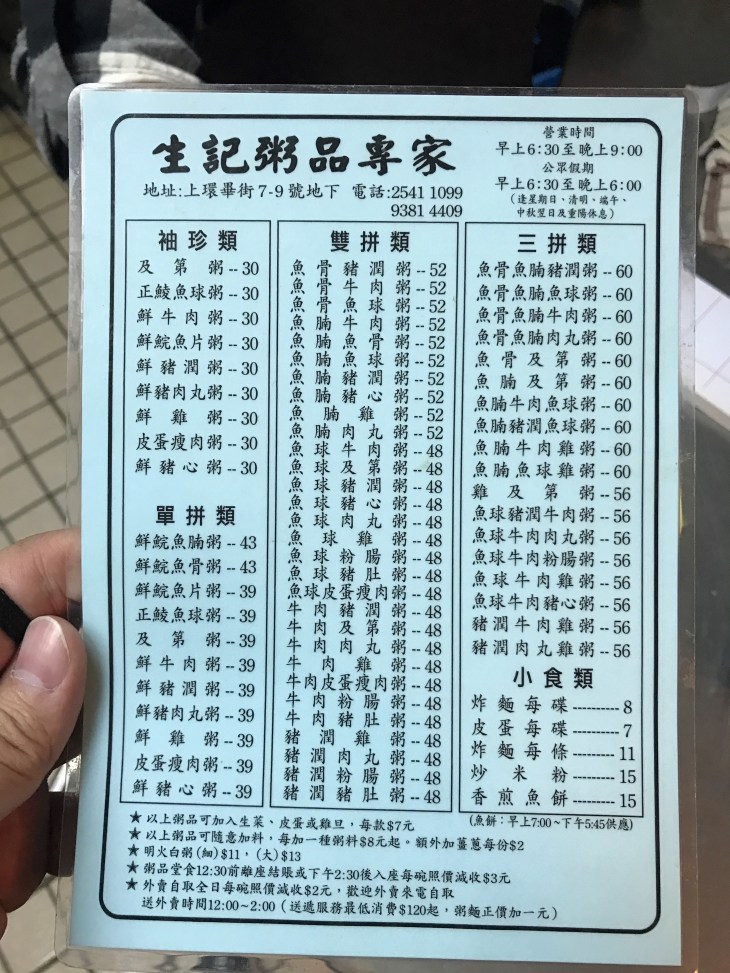 生記粥品專家
地址:上環畢街7-9號地下 電話:2541 1099
9381 4409
營業時間
早上6:30至晚上9:00
公眾假期
早上6:30至晚上6:00
(逢星期日、清明、端午、
中秋翌日及重陽休息)
袖珍類
及第粥--30
正鯪魚球粥--30
鮮牛肉粥--30
鮮鯇魚片粥--30
鮮豬潤粥--30
鮮豬肉丸粥--30
鮮雞粥--30
皮蛋瘦肉粥--30
鮮豬心粥--30
單拼類
鮮鯇魚腩粥--43
鮮鯇魚骨粥--43
鮮鯇魚片粥--39
正鯪魚球粥--39
及第粥--39
鮮牛肉粥--39
鮮豬潤粥--39
鮮豬肉丸粥--39
鮮雞粥--39
皮蛋瘦肉粥--39
鮮豬心粥--39
雙拼類
魚骨豬潤粥--52
魚骨牛肉粥--52
魚骨魚球粥--52
魚腩牛肉粥--52
魚腩魚骨粥--52
魚腩魚球粥--52
魚腩豬潤粥--52
魚腩豬心粥--52
魚腩雞粥--52
魚腩肉丸粥--52
魚球牛肉粥--48
魚球及第粥--48
魚球豬潤粥--48
魚球豬心粥--48
魚球肉丸粥--48
魚球雞粥--48
魚球粉腸粥--48
魚球豬肚粥--48
魚球皮蛋瘦肉粥--48
牛肉豬潤粥--48
牛肉及第粥--48
牛肉肉丸粥--48
牛肉雞粥--48
牛肉皮蛋瘦肉粥--48
牛肉粉腸粥--48
牛肉豬肚粥--48
豬潤雞粥--48
豬潤肉丸粥--48
豬潤粉腸粥--48
豬潤豬肚粥--48
三拼類
魚骨魚腩豬潤粥--60
魚骨魚腩魚球粥--60
魚骨魚腩牛肉粥--60
魚骨魚腩肉丸粥--60
魚骨及第粥--60
魚腩及第粥--60
魚腩牛肉魚球粥--60
魚腩豬潤魚球粥--60
魚腩牛肉雞粥--60
魚腩魚球雞粥--60
雞及第粥--56
魚球豬潤牛肉粥--56
魚球牛肉肉丸粥--56
魚球牛肉粉腸粥--56
魚球牛肉雞粥--56
魚球牛肉豬心粥--56
豬潤牛肉雞粥--56
豬潤肉丸雞粥--56
小食類
炸麵每碟---------8
皮蛋每碟---------7
炸麵每條--------11
炒米粉--------15
香煎魚餅--------15
(魚餅:早上7:00~下午5:45供應)
★以上粥品可加入生菜、皮蛋或雞旦,每款$7元
★以上粥品可隨意加料,每加一種粥料$8元起。額外加薑蔥每份$2
★明火白粥(細)$11,(大)$13
★粥品堂食12:30前離座結賬或下午2:30後入座每碗照價減收$3元
★外賣自取全日每碗照價減收$2元,歡迎外賣來電自取
送外賣時間12:00~2:00(送遞服務最低消費$120起,粥麵正價加一元)